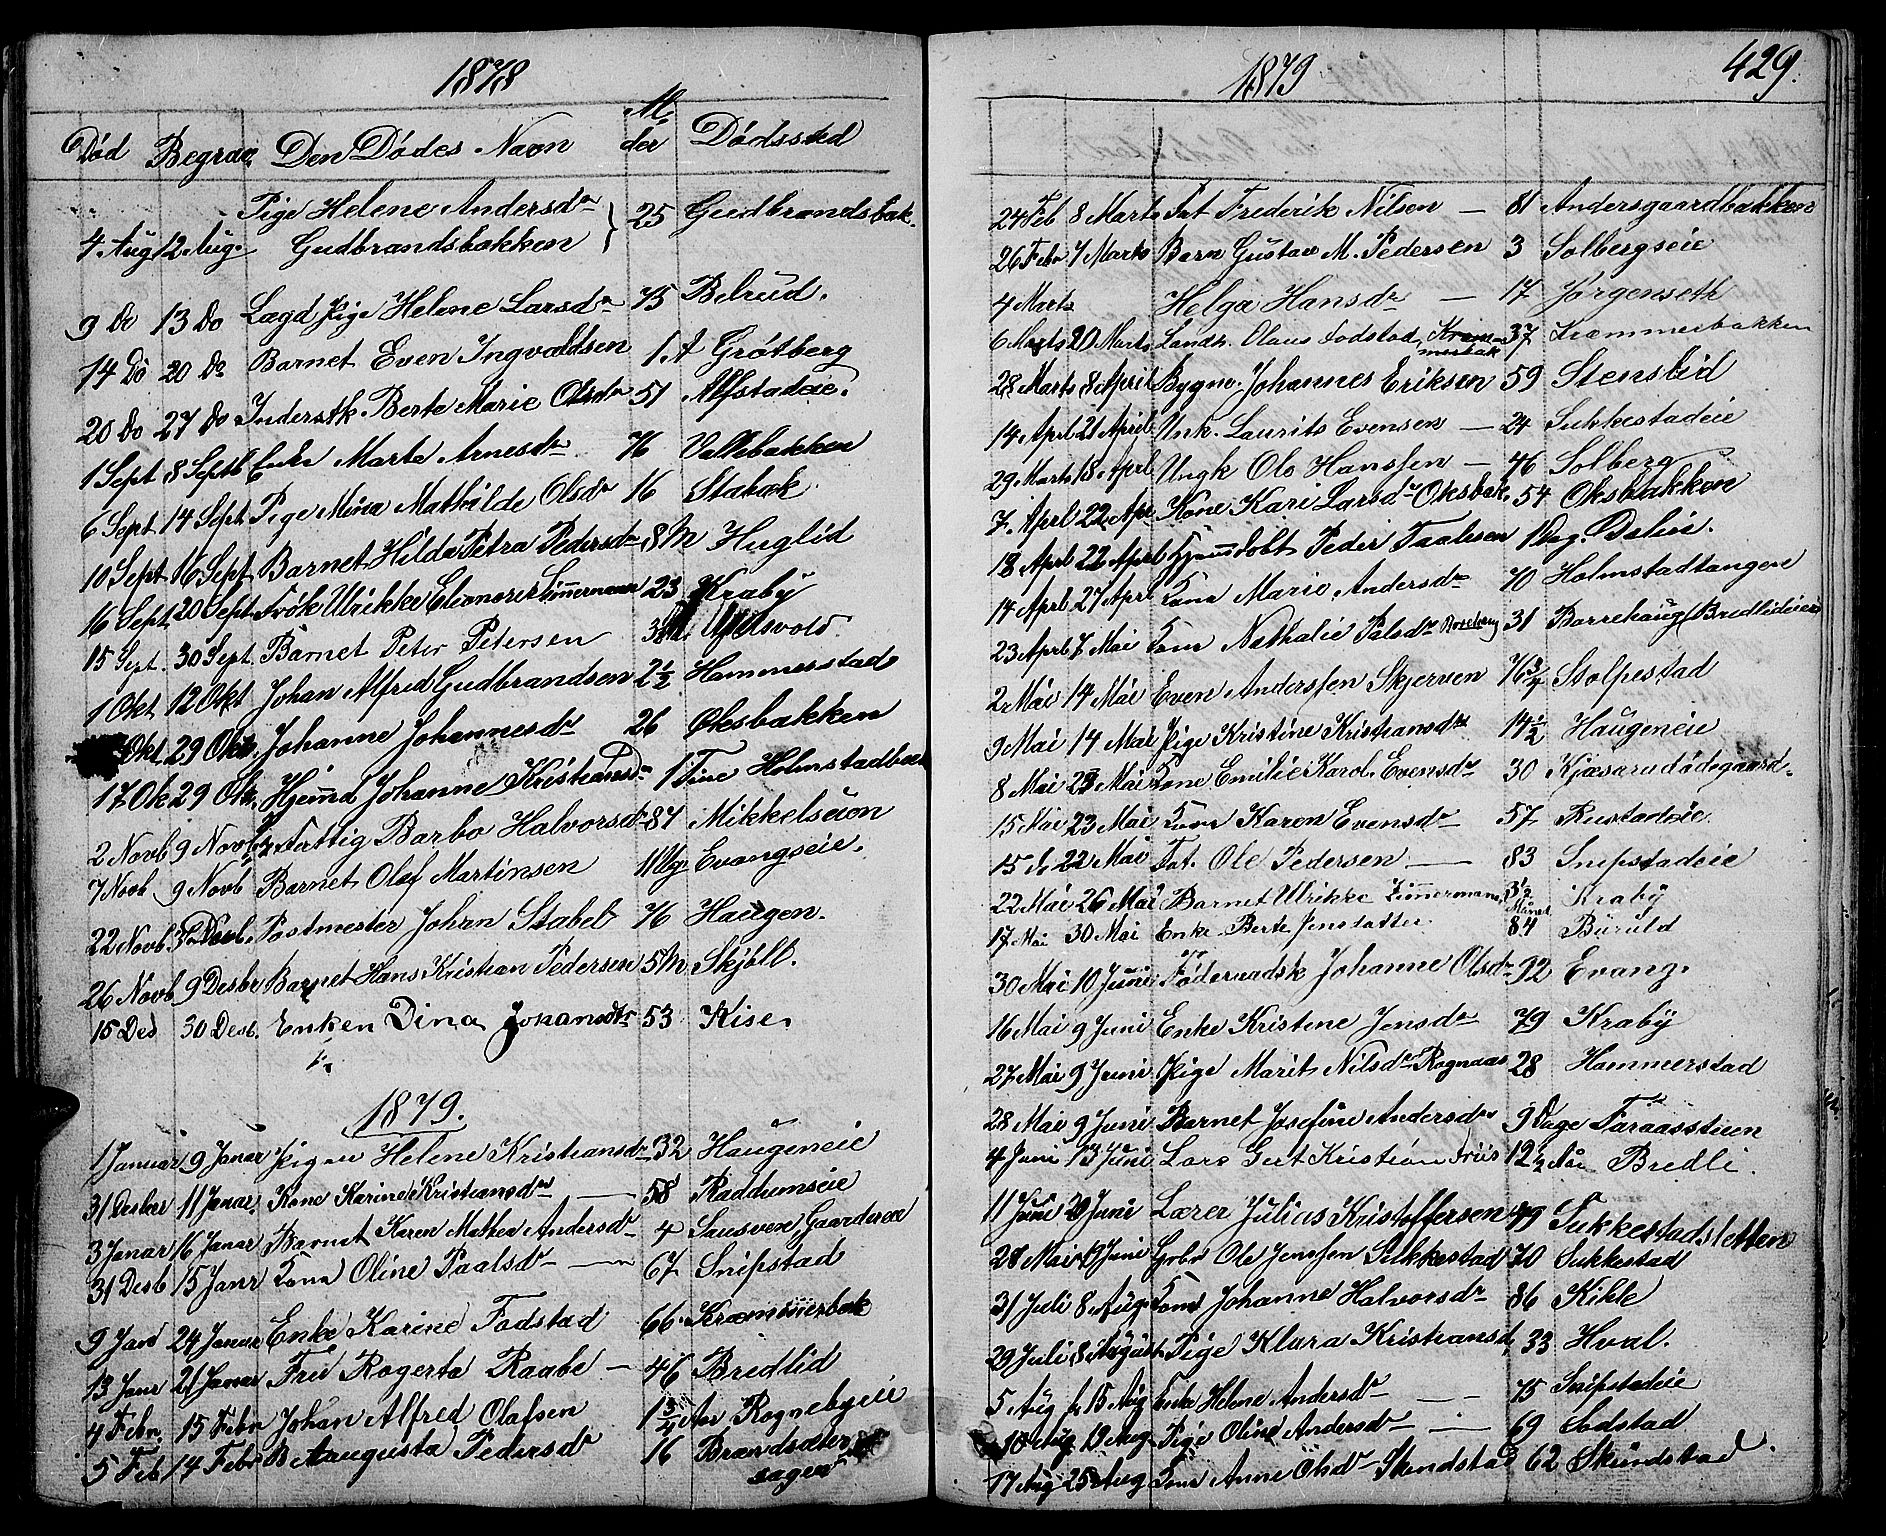 1878
Død Begrav. Den Dødes Navn Al der Dødssted
Pige Helene Andersdr
4 Aug 12 Aug. Gudbrandsbakken } 25 Gudbrandsbak.
9 Do 13 Do Lægd Pige Helene Larsdr 75 Belrud.
14 Do 20 Do Barnet Even Ingvaldsen 1 A Grøtberg
20 Do 27 Do Inderstk. Berte Marie Olsdr 51 Alfstadeie.
1 Sept 8 Septb Enke Marte Arnesdr 76 Vallebakken
6 Sept 14 Sept Pige Mina Mathilde Olsdr 16 Stabæk
10 Sept 16 Sept Barnet Hilda Petra Pedersdr 8 M Huglid
16 Sept 20 Sept Frøk Ulrikke Eleonore Zimmermann 23 Kraby
15 Sept. 30 Sept Barnet Peter Petersen
1 Okt 12 Okt Johan Alfred Gudbrandsen 2½ Hammerstad
Okt 29 Okt Johanne Johannesdr 26 Oksbakken
17 Ok 29 Ok. Hjemd Johanne Kristiansdr 1 Time Holmstadbak
2 Novb 9 Novb Fattig Barbo Halvorsdr 87 Mikkelsuon
7 Novb 9 Novb Barnet Olaf Martinsen 11 Ug Evangseie.
22 Novb. 3 Desb. Postmester Johan Stabel 76 Haugen.
26 Novb 9 Desbr Barnet Hans Kristian Pedersen 5 M Skjøll.
15 Des 30 Desb. Enken Dina Johansdtr 53 Kise.
1879.
1 Januar 9 Janar Pigen Helene Kristiansdr 32 Haugeneie
31 Desber 11 Janar Kone Karine Kristiansdr — 58 Raddumseie
3 Janar 16 Janar Barnet Karen Mathea Andersdr 4 Sausven, Gaardereie
31 Desb 15 Janr Kone Oline Paalsdr — 67 Snipstad
9 Jan 24 Janar Enke Karine Fodstad 66 Kræmmerbak
13 Janr 21 Janar Fru Rogerta Raabe — 46 Bredlid
4 Febr. 15 Febr Johan Alfred Olafsen 1¾ Aar Rognebyeie
5 Feb 14 Febr B Augusta Pedersdr 16 Brandsæter
sagen
1879
429.
24 Feb 8 Marts Fat Frederik Nilsen — 81 Andersgaardbakken
26 Febr 7 Marts Barn Gustav M. Pedersen 3 Solbergseie
4 Marts Helga Hansdr — 17 Jørgenseth
6 Marts 20 Marts Landh. Olaus Fodstad, 37 Kræmmerbakken
28 Marts 8 April Bygm. Johannes Eriksen 59 Stenslid
14 Aprl 21 April Unk. Laurits Evensen — 24 Sukkestadeie
29 Marts 18 Aprl Ungk Ole Hanssen — 46 Solberg
7. Aprl 22 Apr Kone Kari Larsdr Oksbak. 54 Oksbakken
18 Aprl 22 Aprl Hjemdøbt Peder Paalesen 1 Dag. Daleie.
14 Aprl 27 Aprl Kone Marie Andersdr 70 Holmstadtangen
23 Aprl 7 Mai Kone Nathalie Palsdr Rosebaug 31 Borrehaug (Bredlideie)
2 Mai 14 Mai Even Anderssen Skjerven 76¾ Stolpestad
9 Mai 14 Mai Pige Kristine Kristiansdr 14½ Haugeneie
8 Mai 23 Mai Kone Emilie Karol. Evensdr 30 Kjæsarudødegaard.
15 Mai 23 Mai Kone Karen Evensdr — 57 Rustadeie.
15 d. 22 Mai Fat. Ole Pedersen — 83 Snipstadeie
22 Mai 26 Mai Barnet Ulrikke Zimmermann 3½ Måned Kraby
17 Mai 30 Mai Enke Berte Jenstatter 84 Buruld
30 Mai 10 Juni Føderaadsk Johanne Olsdr 92 Evang.
16 Mai 9 Juni Enke Kristine Jensdr 79 Kraby
27 Mai 9 Juni Pige Marit Nilsdr Rognaas 28 Hammerstad
28 Mai 9 Juni Barnet Josefine Andersdr 9 Dage Faraasstuen
4 Juni 13 Juni Lars Gert Kristian Friis 12½ Aar Bredli.
11 Juni 20 Juni Lærer Julius Kristoffersen 49 Sukkestadsletten
28 Mai 9 Juni Grbr Ole Jenssen Sukkestad 70 Sukkestad
31 Juli 8 Aug. Kone Johanne Halvorsdr 86 Kihle
29 Juli 8 August Pige Klara Kristiansd 33 Hval.
5 Aug 15 Aug Enke Helene Andersdr — 75 Snipstadeie
10 Aug 19 Aug Pige Oline Andersdr — 69 Sodstad
17 Aug 25 Aug Kone Anne Olsdr Skundstad 62 Skundstad.